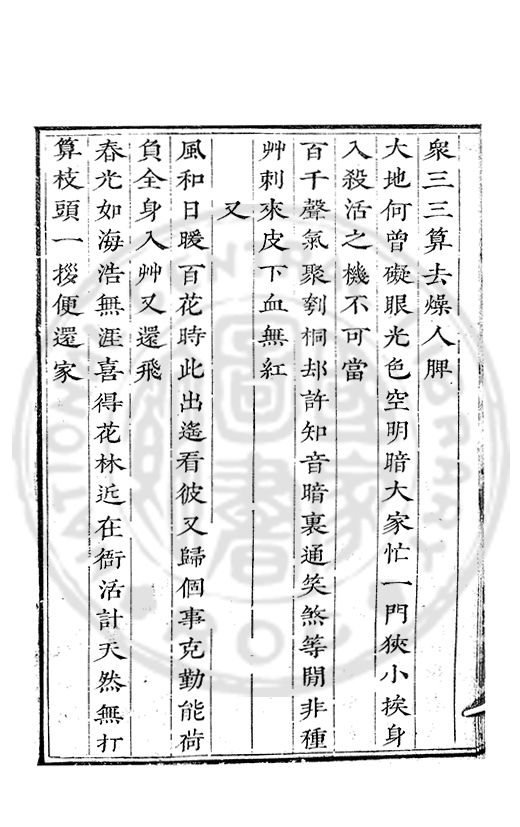 衆三三算去燥人脾
大地何曾礙眼光色空明暗大家忙一門狹小挨身
入殺活之機不可當
百千聲氣聚刳桐却許知音暗裏通笑煞等閒非種
艸刺來皮下血無紅
又
風和日曖百花時此出遙看彼又歸個事克勤能荷
負全身入艸又還飛
春光如海浩無涯喜得花林近在衙活計天然無打
算枝頭一拶便還家